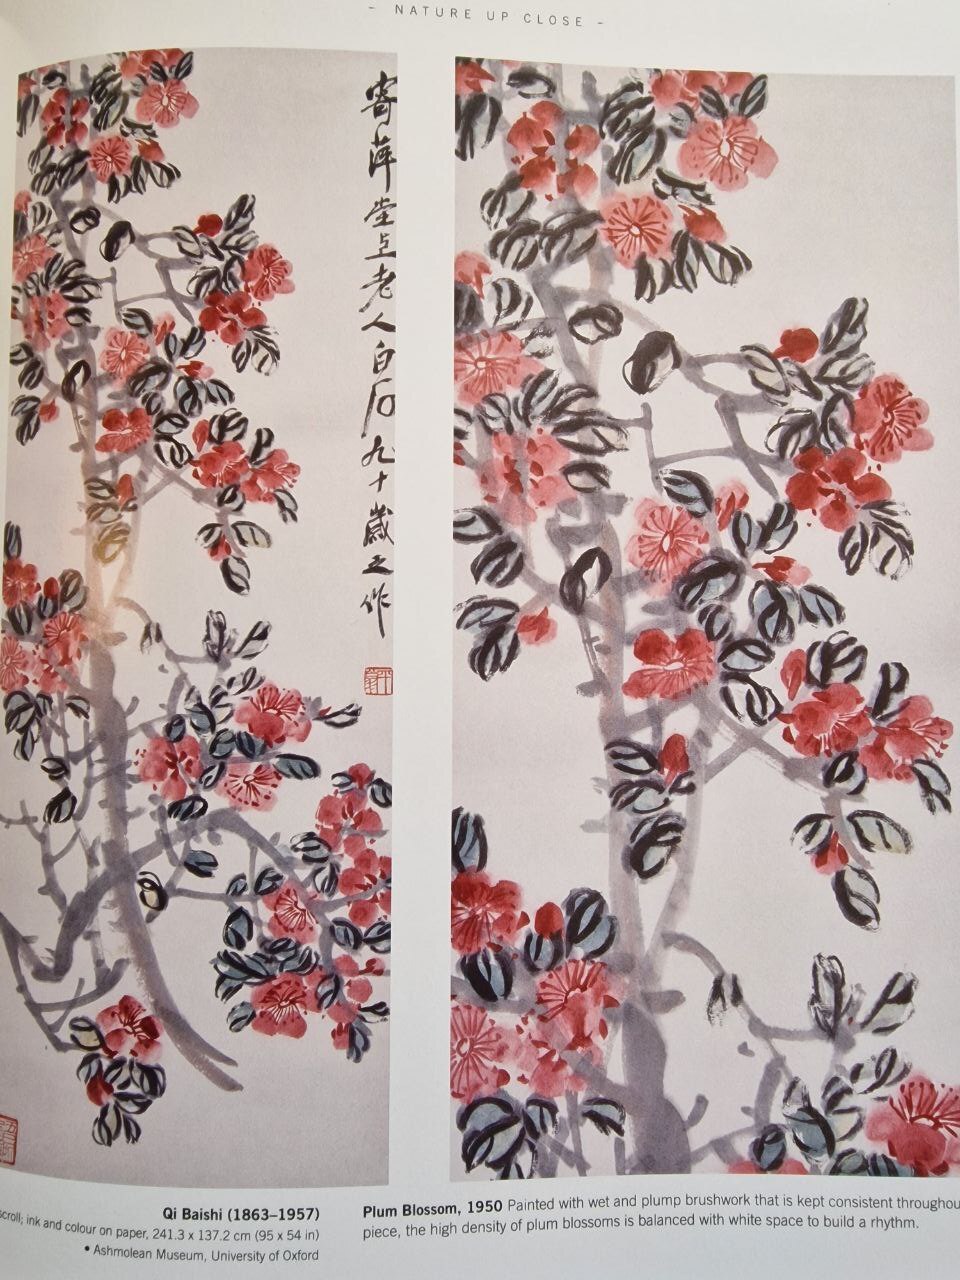 - NATURE UP CLOSE -
寄萍堂上老人白石九十歲之作
Qi Baishi (1863–1957)
scroll; ink and colour on paper, 241.3 x 137.2 cm (95 x 54 in)
• Ashmolean Museum, University of Oxford
Plum Blossom, 1950 Painted with wet and plump brushwork that is kept consistent throughou
piece, the high density of plum blossoms is balanced with white space to build a rhythm.